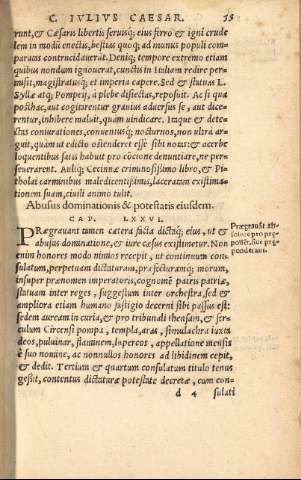 C. IVLIVS CAESAR. 55
runt, & Cæsaris libertis seruisq; eius ferro & igni crude
lem in modū enectis, bestias quoq; ad munus populi com-
paratas contrucidauerat. Deniq; tempore extremo etiam
quibus nondum ignouerat, cunctis in Italiam redire per-
misit, magistratusq; et imperia capere. Sed & statuas L.
Syllæ atq; Pompeij, à plebe disiectas, reposuit. Ac si qua
posthac, aut cogitarentur grauius aduersus se, aut dice-
rentur, inhibere maluit, quàm uindicare. Itaque & dete-
ctas coniurationes, conuentusq; nocturnos, non ultra ar-
guit, quàm ut edicto ostenderet esse sibi notas: & acerbe
loquentibus satis habuit pro cōcione denuntiare, ne per-
seuerarent. Auliq; Cecinnæ criminosissimo libro, & Pi-
tholai carminibus maledicentissimis, laceratam existima-
tionem suam, ciuili animo tulit.
Abusus dominationis & potestatis eiusdem.
CAP. LXXVI.
PRægrauant tamen cætera facta dictaq; eius, ut &
abusus dominatione, & iure cæsus existimetur. Non
enim honores modo nimios recepit, ut continuum con-
sulatum, perpetuam dictaturam, præfecturamq; morum,
insuper prænomen imperatoris, cognomē patris patriæ,
statuam inter reges, suggestum inter orchestra, sed &
ampliora etiam humano fastigio decerni sibi passus est:
sedem auream in curia, & pro tribunali thensam, & fer-
culum Circensi pompa, templa, aras, simulachra iuxta
deos, puluinar, flaminem, lupercos, appellatione mensis
è suo nomine, ac nonnullos honores ad libidinem cepit,
& dedit. Tertium & quartum consulatum titulo tenus
gessit, contentus dictaturæ potestate decretæ, cum con-
d 4 sulati
Prægrauāt ab-
solute pro præ-
pollēt, siue præ-
ponderant.